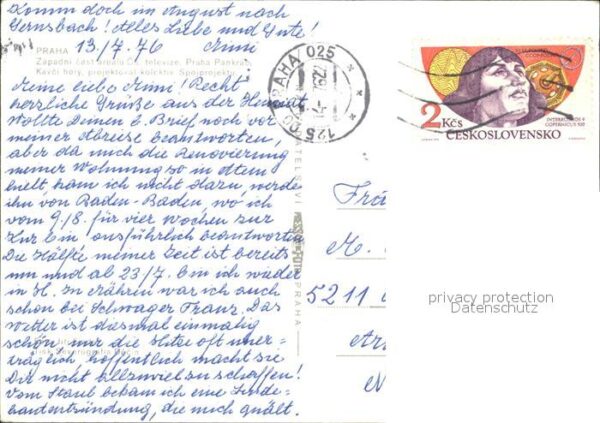 Komm doch im August nach
Gernsbach! Alles Liebe und Gute!
13./7. 76 Anni
PRAHA
Západní část areálu Čs. televize, Praha Pankrác
Kavčí hory, projektoval kolektiv Spojprojektu
Meine liebe Anni! Recht
herzliche Grüße aus der Heimat
Wollte Deinen l. Brief noch vor
meiner Abreise beantworten,
aber da mich die Renovierung
meiner Wohnung so in Atem
hielt, kam ich nicht dazu, werde
ihn von Baden-Baden, wo ich
vom 9./8. für vier Wochen zur
Kur bin ausführlich beantworten
Die Hälfte meiner Zeit ist bereits
um und ab 23/7. bin ich wieder
in H. In Mähren war ich auch
schon bei Schwager Franz. Das
Wetter ist diesmal einmalig
schön, nur die Hitze oft uner-
träglich, hoffentlich macht sie
Dir nicht allzuviel zu schaffen!
Vom Staub bekam ich eine Binde-
hautentzündung, die mich quält.
PRAHA 025
125
PRESSFOTO PRAHA
2 Kčs
ČESKOSLOVENSKO
INTERKOSMOS 9
COPERNICUS 500
M.
5211
privacy protection
Datenschutz